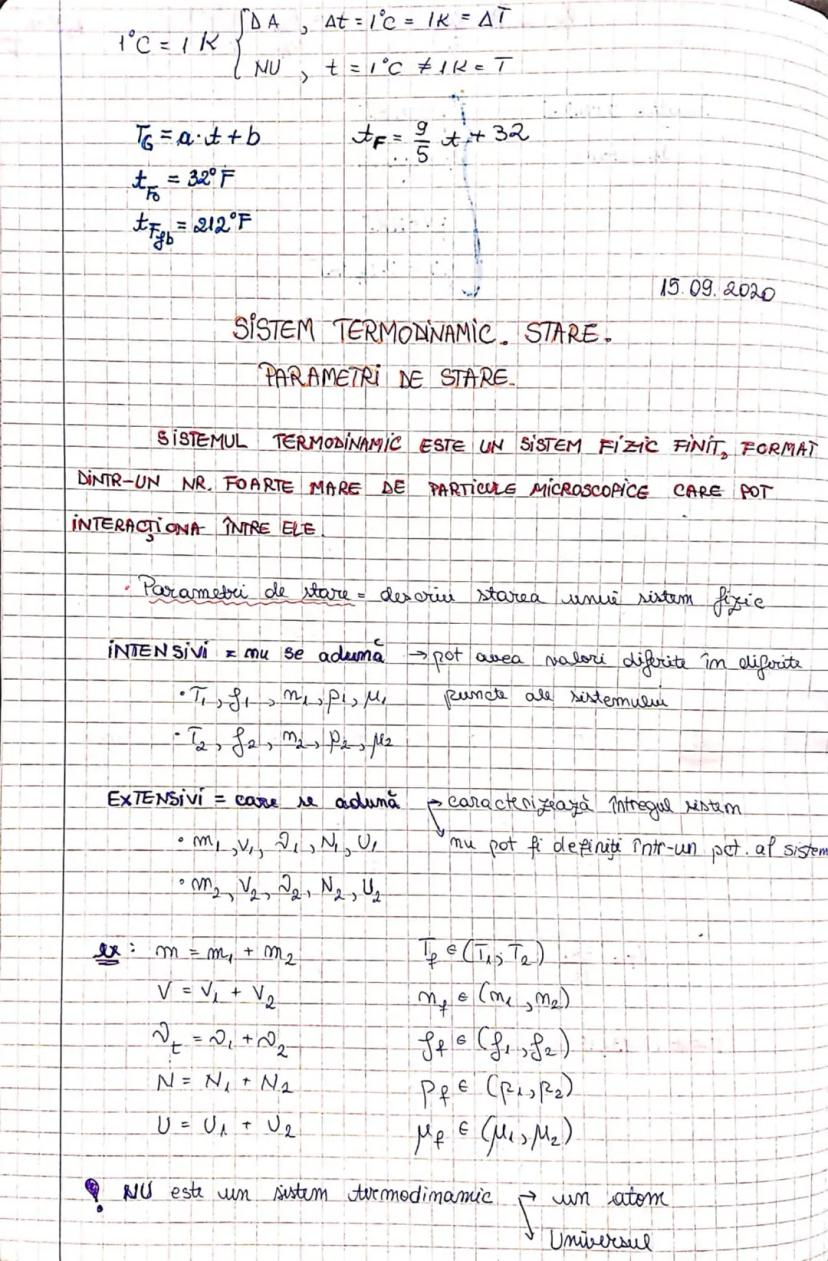 1°C = 1K { DA , Δt = 1°C = 1K = ΔT
NU , t = 1°C ≠ 1K = T
T_G = a·t + b t_F = 9/5 t + 32
t_F₀ = 32°F
t_Ffb = 212°F
15.09.2020
SISTEM TERMODINAMIC. STARE.
PARAMETRI DE STARE.
SISTEMUL TERMODINAMIC ESTE UN SISTEM FIZIC FINIT, FORMAT
DINTR-UN NR. FOARTE MARE DE PARTICULE MICROSCOPICE CARE POT
INTERACȚIONA ÎNTRE ELE.
• Parametri de stare = descriu starea unui sistem fizic
INTENSIVI = nu se adună → pot avea valori diferite în diferite
• T₁, ρ₁, n₁, p₁, μ₁ puncte ale sistemului
• T₂, ρ₂, n₂, p₂, μ₂
EXTENSIVI = care se adună → caracterizează întregul sistem
• m₁, V₁, ν₁, N₁, U₁ ↘ nu pot fi definiți într-un pct. al sistem
• m₂, V₂, ν₂, N₂, U₂
ex: m = m₁ + m₂ T_f ∈ (T₁; T₂)
V = V₁ + V₂ n_f ∈ (n₁, n₂)
ν_t = ν₁ + ν₂ ρ_f ∈ (ρ₁, ρ₂)
N = N₁ + N₂ p_f ∈ (p₁, p₂)
U = U₁ + U₂ μ_f ∈ (μ₁, μ₂)
! NU este un sistem termodinamic → un atom
↘ Universul